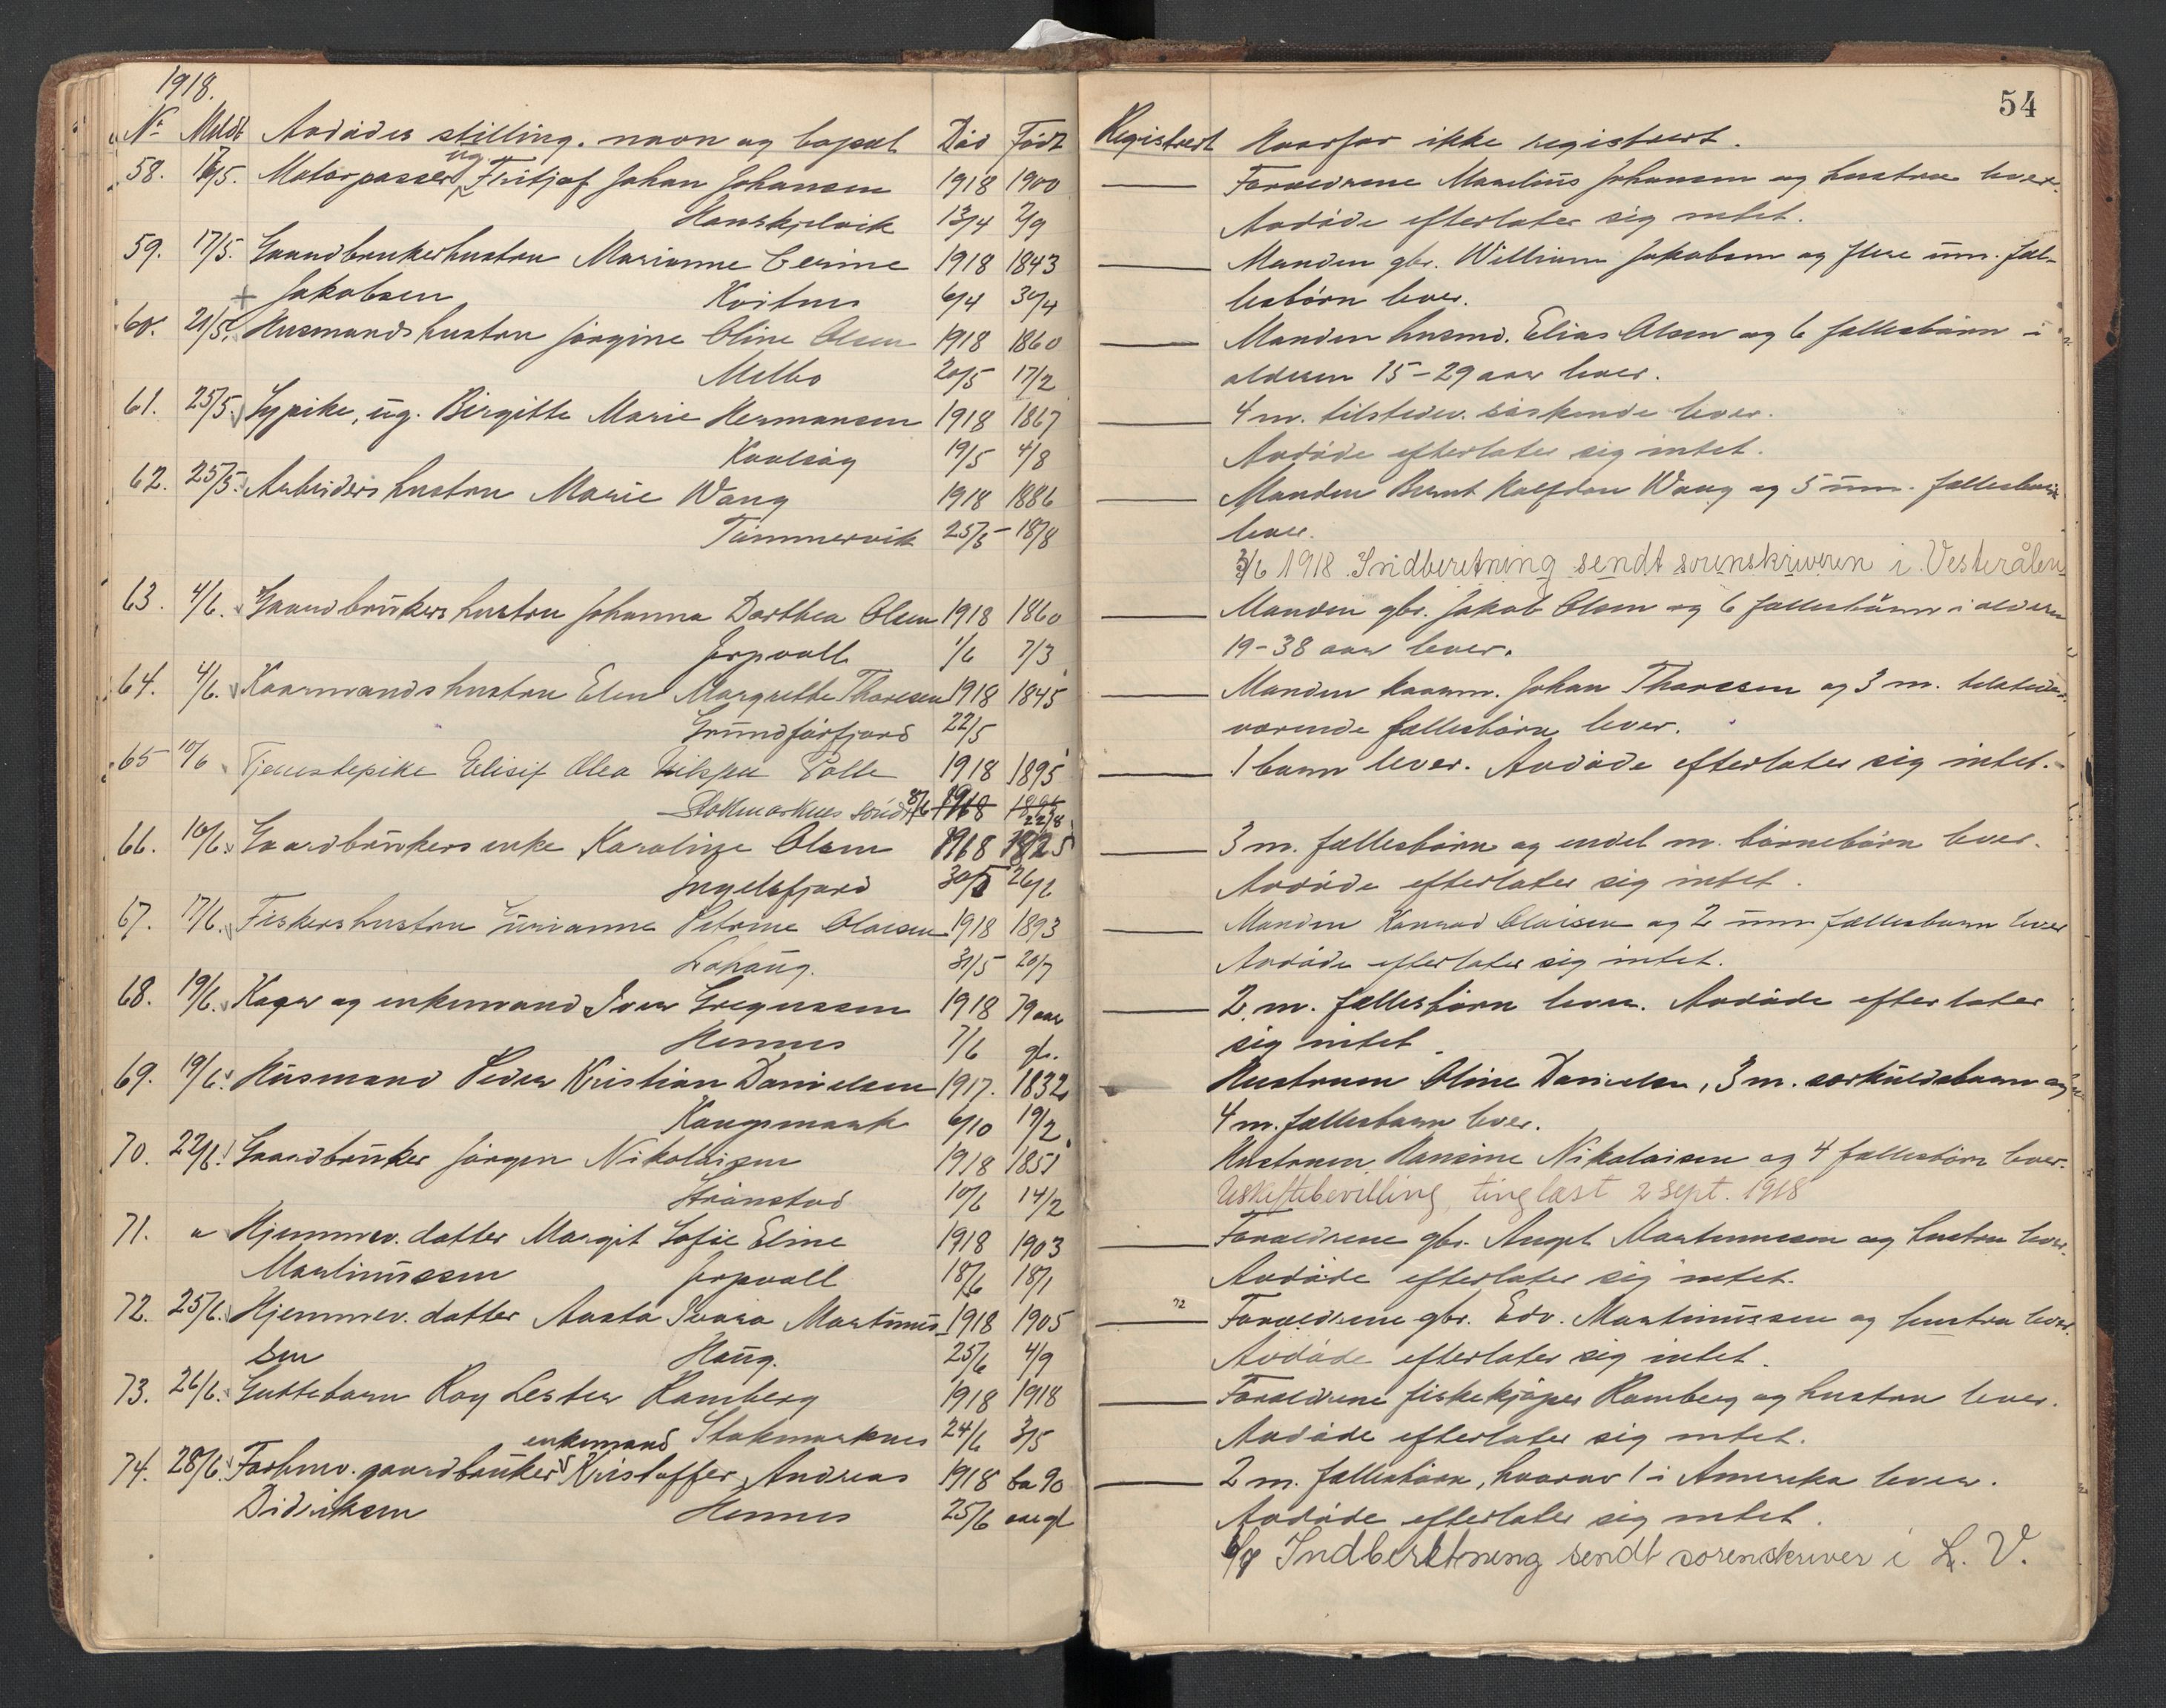 1918.
No Meldt Avdødes stilling. navn og bopæl Død Født
58. 17/5. Motorpasser ug. Fritjof Johan Johansen 1918 1900
Hanskjelvik 13/4 2/9
59. 17/5. Gaardbrukerhustru Marianne Cerine 1918 1843
Jakobsen Kvitnes 6/4 30/4
60. 21/5. Husmandshustru Jørgine Oline Olsen 1918 1860
Melbo 20/5 17/2
61. 25/5. Sypike, ug. Birgitte Marie Hermansen 1918 1867
Kaaløy 19/5 4/8
62. 25/5. Arbeiders hustru Marie Wang 1918 1886
Tømmervik 25/5 18/8
63. 4/6. Gaardbrukers hustru Johanna Dorthea Olsen 1918 1860
Jørpvoll 1/6 7/3
64. 4/6. Kaarmands hustru Elen Margrethe Thoresen 1918 1845
Grundførfjord 22/5
65 10/6 Tjenestepike Elisif Olea Polle 1918 1895
Stokmarknes 8/6 1918 22/8
66. 10/6. Gaardbrukers enke Karoline Olsen 1918 1825
Ingelsfjord 30/5 26/6
67. 17/6. Fiskershustru Jurianne Petrine Olaisen 1918 1893
Lahaug. 31/5 20/7
68. 19/6. Kaar og enkemand Iver Gregussen 1918 79 aar
Hennes 7/6 gl.
69. 19/6. Husmand Peder Kristian Danielsen 1917. 1832
Kongsmark 6/10 19/2
70. 22/6. Gaardbruker Jørgen Nikolaisen 1918 1851
Strønstad 10/6 14/2
71. " Hjemmev. datter Margit Sofie Eline 1918 1903
Martinussen Jørpvoll 18/6 18/1
72. 25/6. Hjemmev. datter Aasta Ivara Martinus- 1918 1905
sen Haug. 25/6 4/9
73. 26/6. Guttebarn Roy Lester Ramberg 1918 1918
Stokmarknes 24/6 3/5
74. 28/6. Forhenv. gaardbruker enkemand Kristoffer Andreas 1918 ca 90
Didriksen Hennes 25/6 aar gl
54
Registrert Hvorfor ikke registrert.
Forældrene Marelius Johansen og hustru lever.
Avdøde efterlater sig intet.
Manden gbr. William Jakobsen og flere um. fæl-
lesbørn lever.
Manden husmd. Elias Olsen og 6 fællesbørn i
alderen 15-29 aar lever.
4 m. tilstedev. søskende lever.
Avdøde efterlater sig intet.
Manden Bernt Halfdan Wang og 5 um. fællesbørn
lever.
3/6 1918 Indberetning sendt sorenskriveren i Vesterålen
Manden gbr. Jakob Olsen og 6 fællesbørn i alderen
19-38 aar lever.
Manden kaarm. Johan Thoressen og 3 m. tilstede-
værende fællesbørn lever.
1 barn lever. Avdøde efterlater sig intet.
3 m. fællesbørn og endel m. børnebørn lever.
Avdøde efterlater sig intet.
Manden Konrad Olaisen og 2 um fællesbarn lever
Avdøde efterlater sig intet.
2 m. fællesbørn lever. Avdøde efterlater
sig intet.
Hustruen Oline Danielsen, 3 m. særkuldsbarn og
4 m. fællesbarn lever.
Hustruen Hansine Nikolaisen og 4 fællesbørn lever.
Uskiftebevilling tinglæst 2 sept. 1918
Forældrene gbr. Angel Martinussen og hustru lever.
Avdøde efterlater sig intet.
72 Forældrene gbr. Edv. Martinussen og hustru lever.
Avdøde efterlater sig intet.
Forældrene fiskekjøper Ramberg og hustru lever.
Avdøde efterlater sig intet.
2 m. fællesbørn, hvorav 1 i Amerika lever.
Avdøde efterlater sig intet.
6/8 Indberetning sendt sorenskriver i L. V.